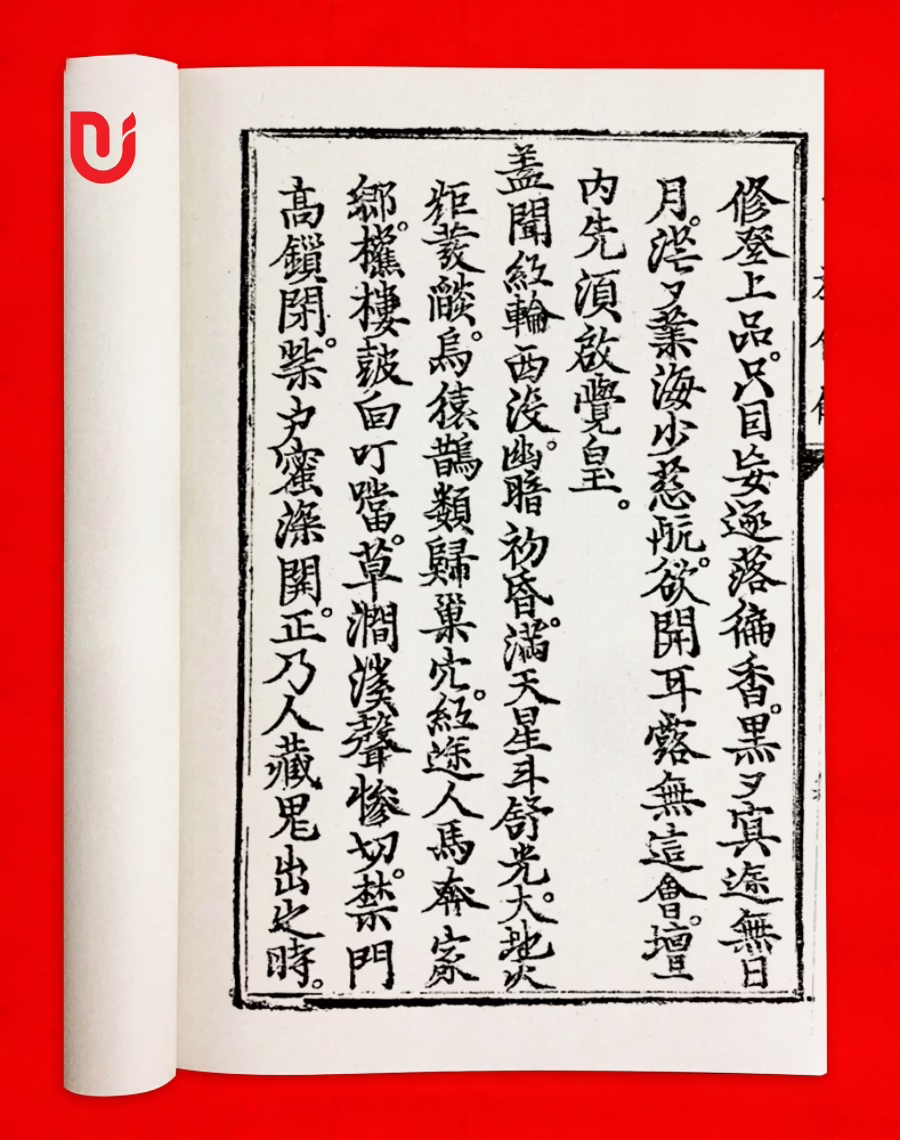 修登上品。只因妄逐落徧香。黒〻㝠途無日
月。茫〻業海少慈航。欲開耳露無這會。壇
内先須啟覺皇。
盖聞紅輪西没。幽暗初昏。滿天星斗舒光。大地火
炬發燄。烏猿鵲類歸巢穴。紅途人馬奔家
鄉。樵樓鼓面叮噹。草澗溪聲惨切。禁門
高鎖閉。柴户蜜深開。正乃人藏鬼出之時。